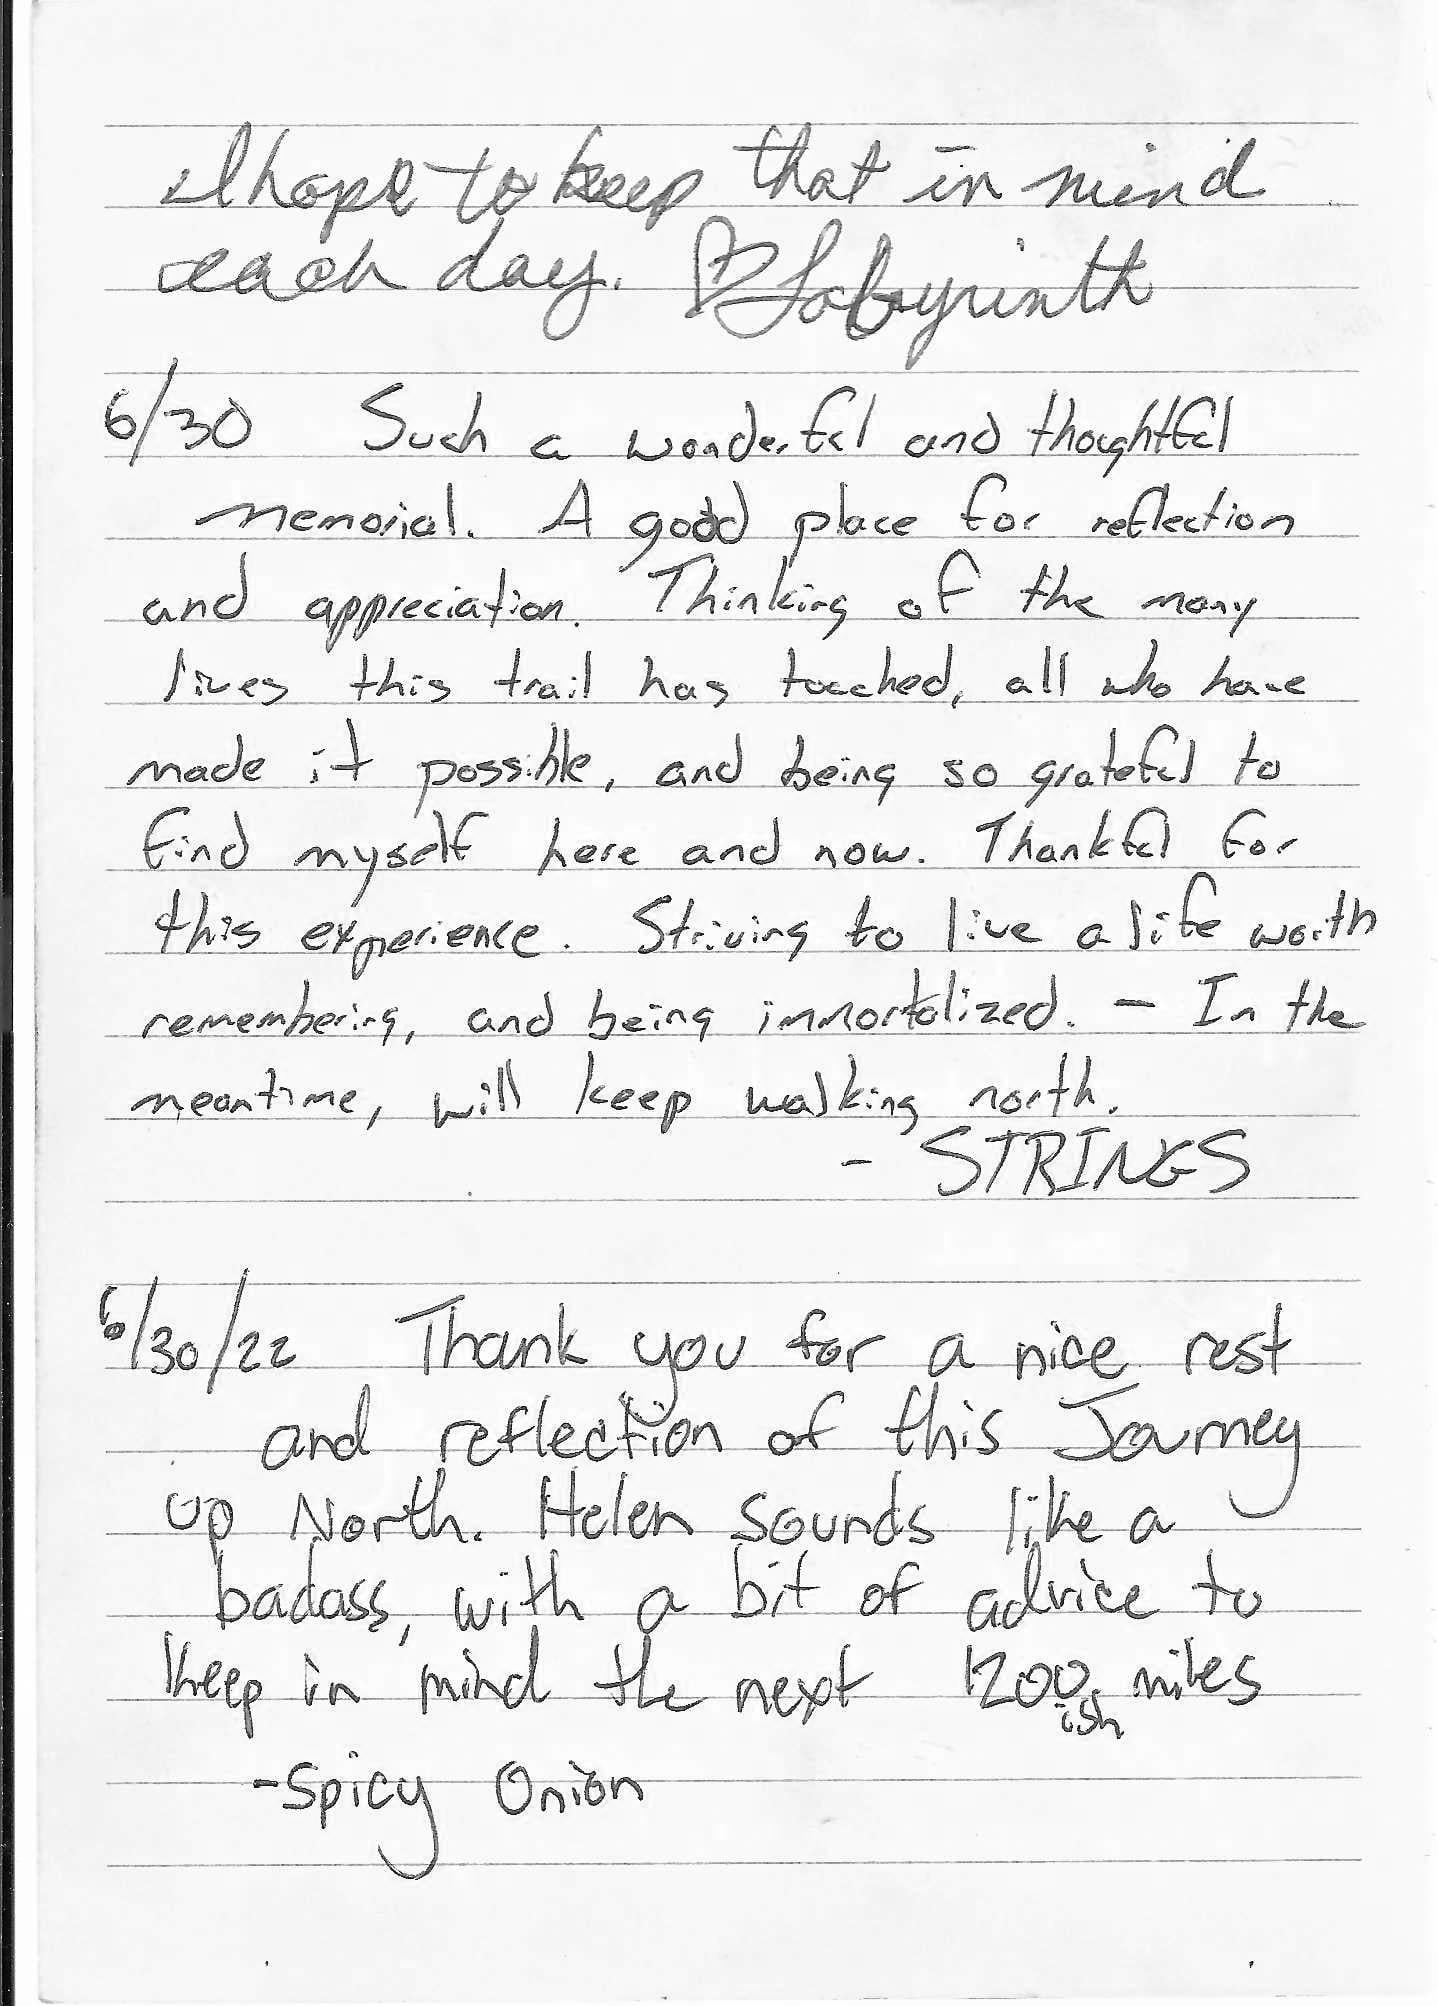 I hope to keep that in mind
each day. ♡ Labyrinth
6/30 Such a wonderful and thoughtful
memorial. A good place for reflection
and appreciation. Thinking of the many
lives this trail has touched, all who have
made it possible, and being so grateful to
find myself here and now. Thankful for
this experience. Striving to live a life worth
remembering, and being immortalized. - In the
meantime, will keep walking north.
- STRINGS
6/30/22 Thank you for a nice rest
and reflection of this Journey
up North. Helen sounds like a
badass, with a bit of advice to
keep in mind the next 1200 miles
ish
-Spicy Onion